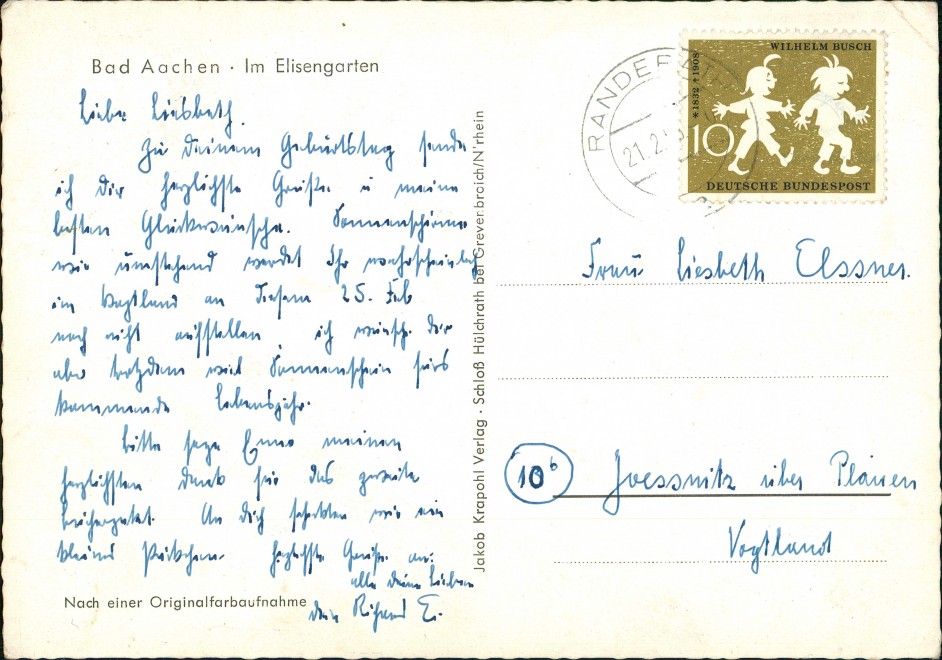 Bad Aachen · Im Elisengarten
Liebe Liesbeth.
Zu Deinem Geburtstag sende
ich dir herzlichste Grüße u meine
besten Glückwünsche. Sonnenschirme
wie umstehend werdet Ihr wahrscheinlich
im Vogtland an diesem 25. Feb
noch nicht aufstellen, ich wünsche dir
aber trotzdem viel Sonnenschein fürs
kommende Lebensjahr.
Bitte sage Enno meinen
herzlichsten Dank für das zweite
An dich schickten wir ein
kleines Päckchen. Herzlichste Grüße an:
alle deine Lieben
dein Richard E.
Nach einer Originalfarbaufnahme
Jakob Krapohl Verlag · Schloß Hülchrath bei Grevenbroich/N'rhein
RANDER
21.2.
WILHELM BUSCH
*1832 †1908
10
DEUTSCHE BUNDESPOST
Frau Liesbeth Elssner.
10b Joessnitz über Plauen
Vogtland